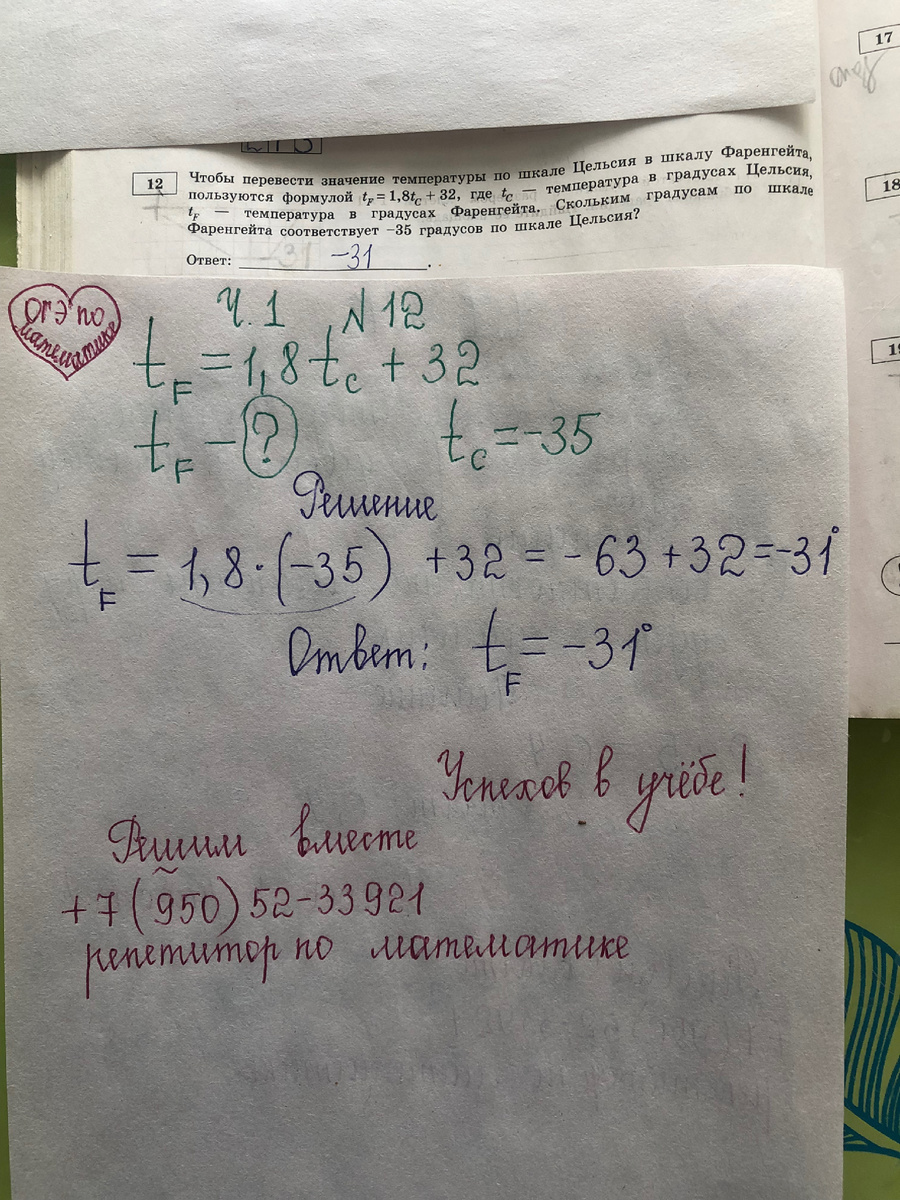 17
12
Чтобы перевести значение температуры по шкале Цельсия в шкалу Фаренгейта,
пользуются формулой t_F = 1,8t_C + 32, где t_C — температура в градусах Цельсия,
t_F — температура в градусах Фаренгейта. Скольким градусам по шкале
Фаренгейта соответствует –35 градусов по шкале Цельсия?
Ответ: –31.
18
ОГЭ по
математике
Ч.1 N12
t_F = 1,8 t_C + 32
t_F – ? t_C = –35
Решение
t_F = 1,8·(–35) +32 = –63 +32 = –31°
Ответ: t_F = –31°
Успехов в учёбе!
Решим вместе
+7(950)52-33921
репетитор по математике